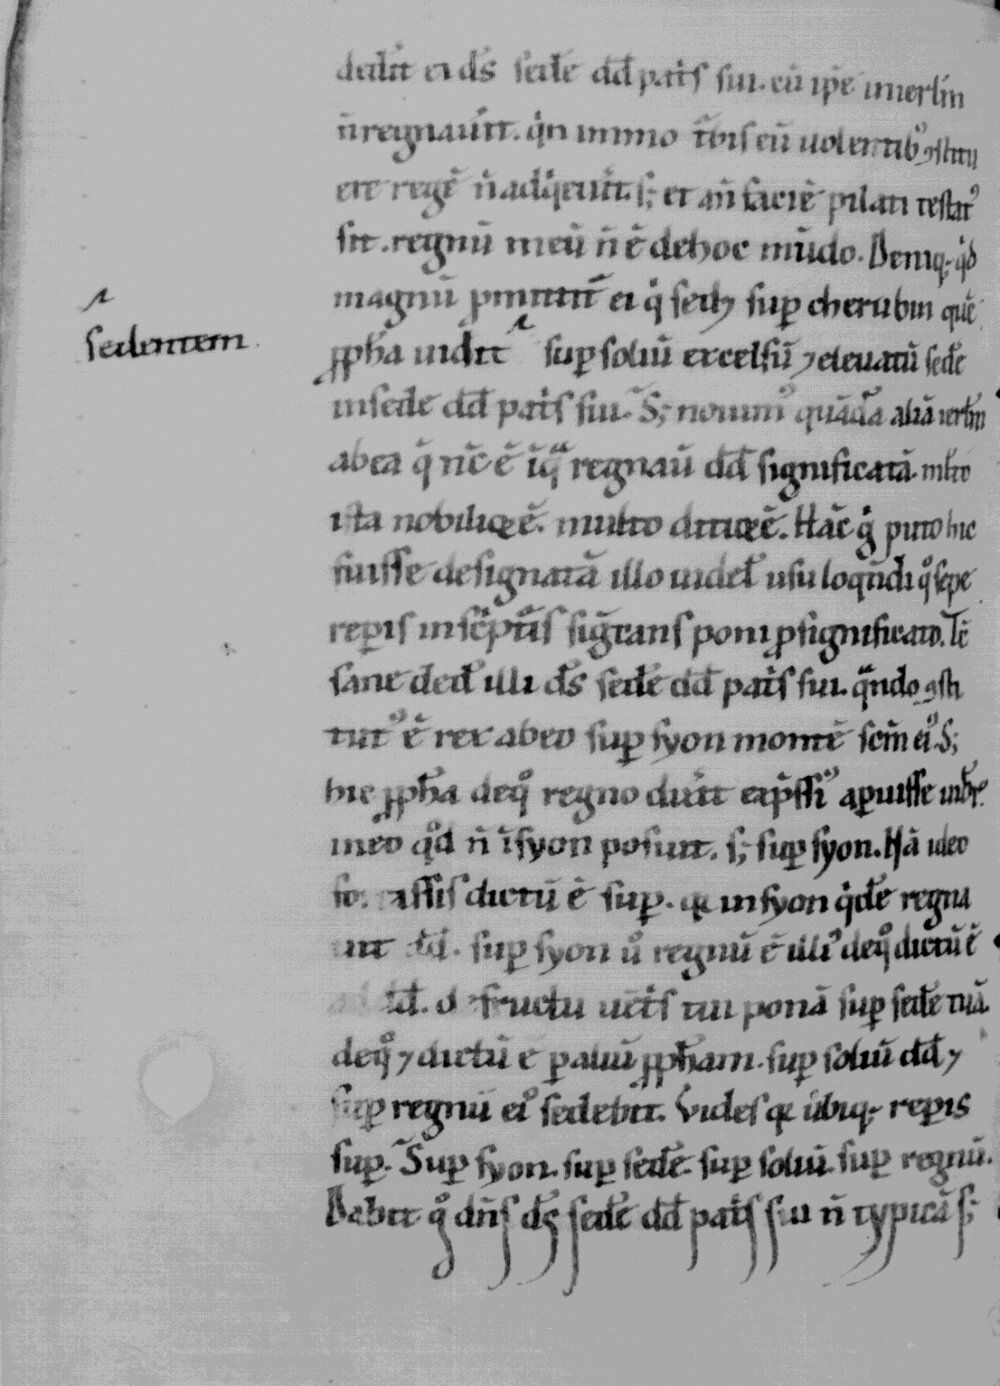 dedit̄ ei d̄s sedē dd̄ pat̓s sui. cū ip̄e in ierl̄m
n̄ regnaū̓it. q̓n immo t̄bis eū uolentib᷒ ꝯstitu
ere regē n̄ adq̓euit. s; et an̄ faciē pilati testat᷒
sit. regnū meū n̄ ē de hoc mūdo. Deniq; q̓d
magnū ꝓmittit̄ ei q̓ sedꝫ sup̱ cherubin quē
ꝓph̄a uidit sup̱ soliū excelsū ⁊ eleuatū sedē
sedentem
in sede dd̄ pat̓s sui. S; nouim᷒ quādā aliā ierl̄m
ab ea q̄ nc̄ ē ī qᵃ regnaū dd̄ significatā. ml̄to
ista nobiliorē. multo ditiorē. Hāc g̓ puto hic
fuisse designatā illo uidel̄ usu loqn̄di qͦ sepe
rep̱is in sc̓pt̄is sig̓cans poni ꝓ significato. Tc̄
sane ded̄ illi d̄s sedē dd̄ pat̓s sui. qᵃndo ꝯsti
tut᷒ ē rex ab eo sup̱ syon montē sc̄m ei᷒. S;
hic ꝓph̄a de qͦ regno dix̓it exp̄ssi᷒ ap̱uisse uidet᷒.
in eo qͦd n̄ ī syon posuit. s; sup̱ syon. Nā ideo
fortassis dictū ē sup̱. qꝛ in syon q̓dē regna
uit dd̄. sup̱ syon u̓ͦ regnū ē illi᷒ de qͦ dictū ē
ad dd̄. de fructu uēt̓s tui ponā sup̱ sedē tuā.
de qͦ ⁊ dictū ē p̱ aliū ꝓph̄am. sup̱ soliū dd̄ ⁊
sup̱ regnū ei᷒ sedebit. Vides qꝛ ubiq; rep̱is
sup̱. Sup̱ syon. sup̱ sedē. sup̱ soliū. sup̱ regnū.
Dabit g̊ dn̄s d̄s sedē dd̄ pat̓s sui n̄ typicā s;